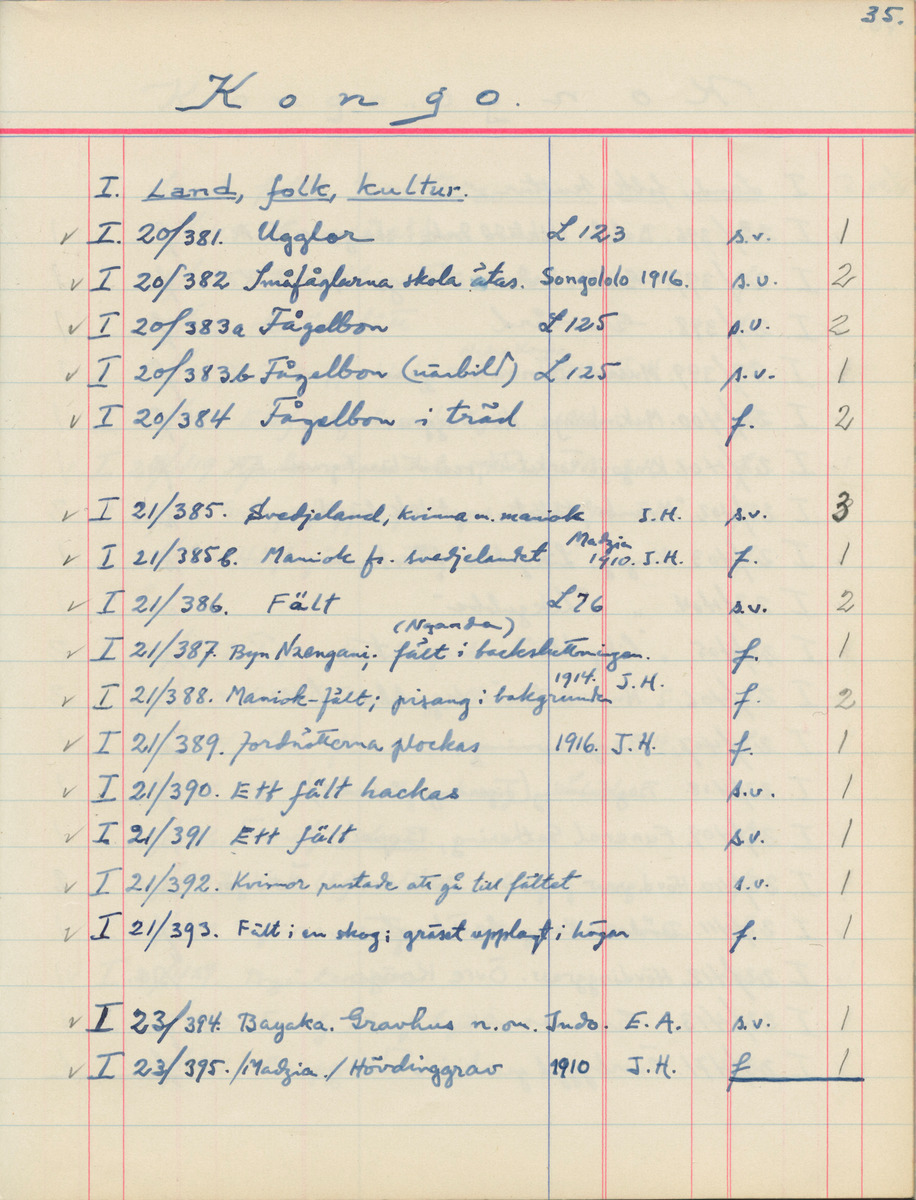 35.
Kongo.
I. Land, folk, kultur.
✓ I. 20/381. Ugglor L 123 s.v. 1
✓ I 20/382 Småfåglarna skola ätas. Songololo 1916. s.v. 2
✓ I 20/383a Fågelbon L 125 s.v. 2
✓ I 20/383b Fågelbon (närbild) L 125 s.v. 1
✓ I 20/384 Fågelbon i träd f. 2
✓ I 21/385. Svedjeland, kvinna m. maniok J.H. s.v. 3
✓ I 21/385b. Maniok fr. svedjelandet Madzia 1910. J.H. f. 1
✓ I 21/386. Fält L 76 s.v. 2
(Nganda)
✓ I 21/387. Byn Nzengani; fält i backsluttningen. f. 1
✓ I 21/388. Maniok-fält; pisang i bakgrunden 1914. J.H. f. 2
✓ I 21/389. Jordnötterna plockas 1916. J.H. f. 1
✓ I 21/390. Ett fält hackas s.v. 1
✓ I 21/391 Ett fält s.v. 1
✓ I 21/392. Kvinnor rustade att gå till fältet s.v. 1
✓ I 21/393. Fält i en skog; gräset upplagt i högar f. 1
✓ I 23/394. Bayaka. Gravhus n.om. Indo. E.A. s.v. 1
✓ I 23/395. /Madzia./ Hövdinggrav 1910 J.H. f 1